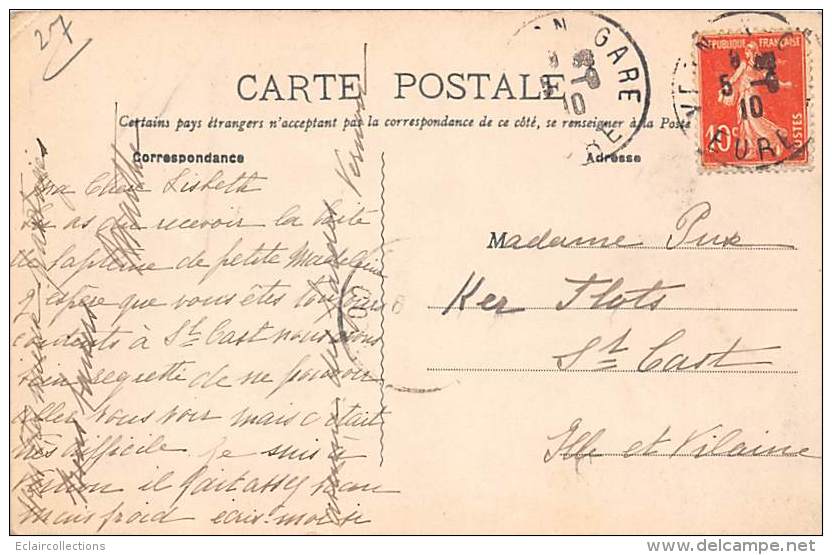 27
CARTE POSTALE
Certains pays étrangers n'acceptant pas la correspondance de ce côté, se renseigner à la Poste
Correspondance
Adresse
RÉPUBLIQUE FRANÇAISE
10c
POSTES
GARE
5
10
EURE
5
10
Ma Chère Lisbeth
tu as du recevoir la boite
de bapteme de petite Madeleine
j'espère que vous êtes toujours
contents à St Cast nous avons
bien regretté de ne pouvoir
aller vous voir mais c'était
très difficile je suis à
Vernon il fait assez beau
mais froid écris-moi si
Madame Pux
Ker Flots
St Cast
Ille et Vilaine
Vernon
Eclaircollections
www.delcampe.net